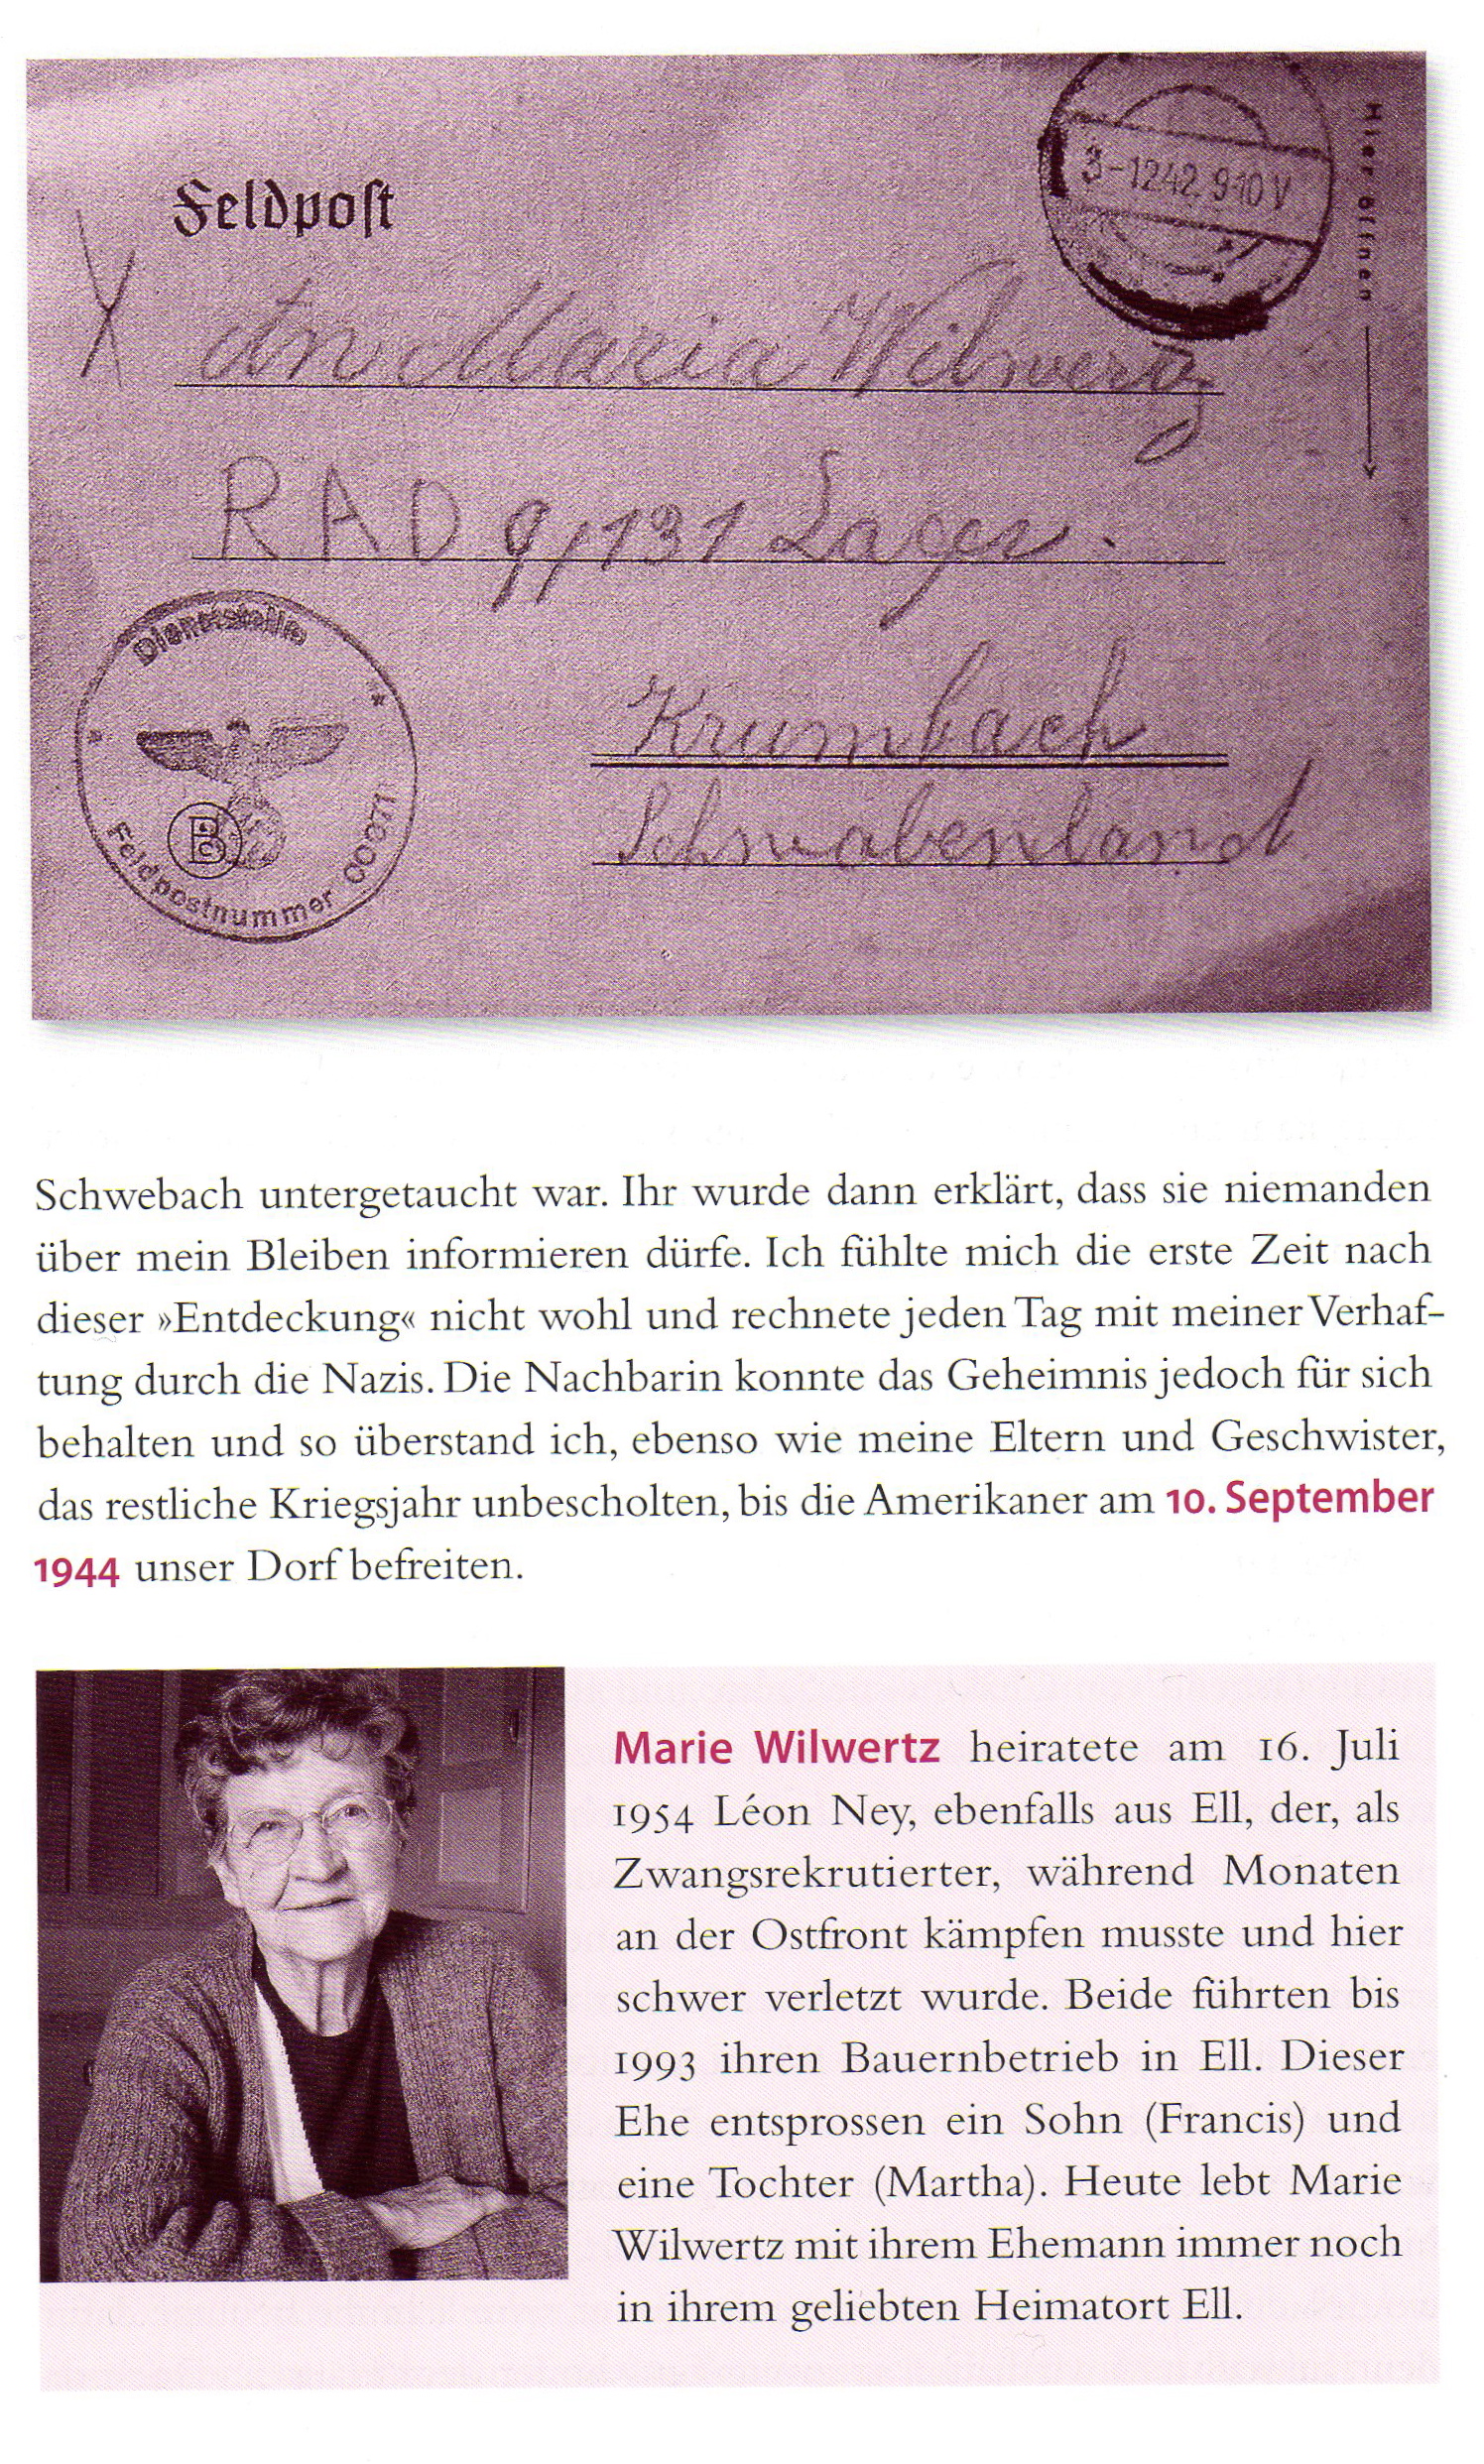 Feldpost
3-1242.9-10V
Hier öffnen
X An Maria Wilwerz
RAD 9/131 Lager.
Krumbach
Schwabenland
Dienststelle
B
Feldpostnummer 00071
Schwebach untergetaucht war. Ihr wurde dann erklärt, dass sie niemanden
über mein Bleiben informieren dürfe. Ich fühlte mich die erste Zeit nach
dieser »Entdeckung« nicht wohl und rechnete jeden Tag mit meiner Verhaf-
tung durch die Nazis. Die Nachbarin konnte das Geheimnis jedoch für sich
behalten und so überstand ich, ebenso wie meine Eltern und Geschwister,
das restliche Kriegsjahr unbescholten, bis die Amerikaner am 10. September
1944 unser Dorf befreiten.
Marie Wilwertz heiratete am 16. Juli
1954 Léon Ney, ebenfalls aus Ell, der, als
Zwangsrekrutierter, während Monaten
an der Ostfront kämpfen musste und hier
schwer verletzt wurde. Beide führten bis
1993 ihren Bauernbetrieb in Ell. Dieser
Ehe entsprossen ein Sohn (Francis) und
eine Tochter (Martha). Heute lebt Marie
Wilwertz mit ihrem Ehemann immer noch
in ihrem geliebten Heimatort Ell.